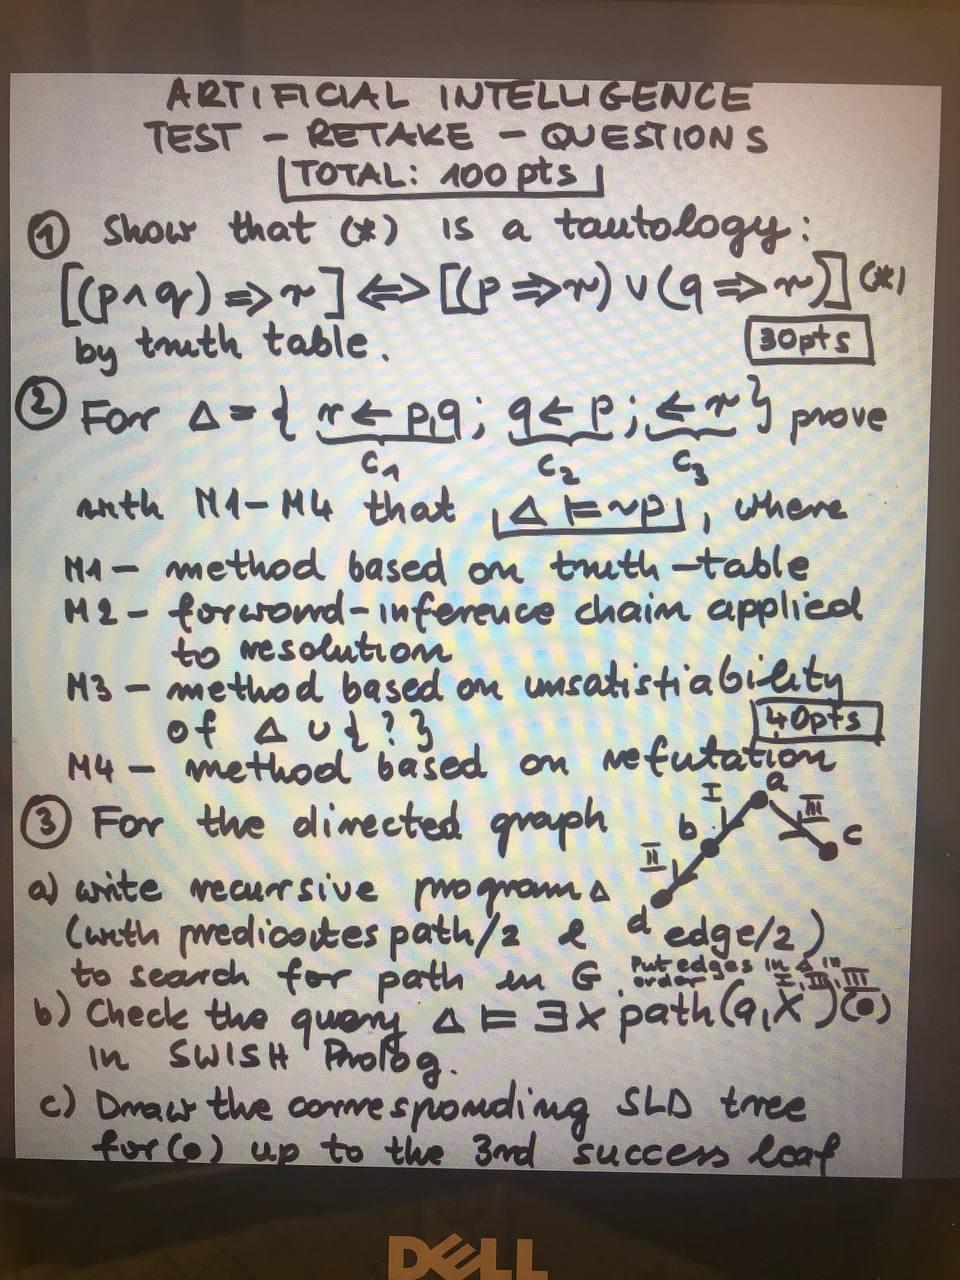 ARTIFICIAL INTELLIGENCE
TEST - RETAKE - QUESTIONS
TOTAL: 100 pts
① Show that (*) is a tautology:
[(p∧q)⇒r]⇔[(p⇒r)∨(q⇒r)] (*)
by truth table.
30pts
② For Δ = { r←p,q; q←p; ←r } prove
C1 C2 C3
with M1-M4 that Δ ⊨ ~p, where
M1 - method based on truth-table
M2 - forward-inference chain applied
to resolution
M3 - method based on unsatisfiability
of Δ ∪ {?}
40pts
M4 - method based on refutation
③ For the directed graph
a
I
III
b
c
II
d
a) write recursive program Δ
(with predicates path/2 & edge/2)
to search for path in G. Put edges in Δ in
order I, II, III
b) Check the query Δ ⊨ ∃X path(a,X) (•)
in SWISH Prolog.
c) Draw the corresponding SLD tree
for (•) up to the 3rd success leaf
DELL